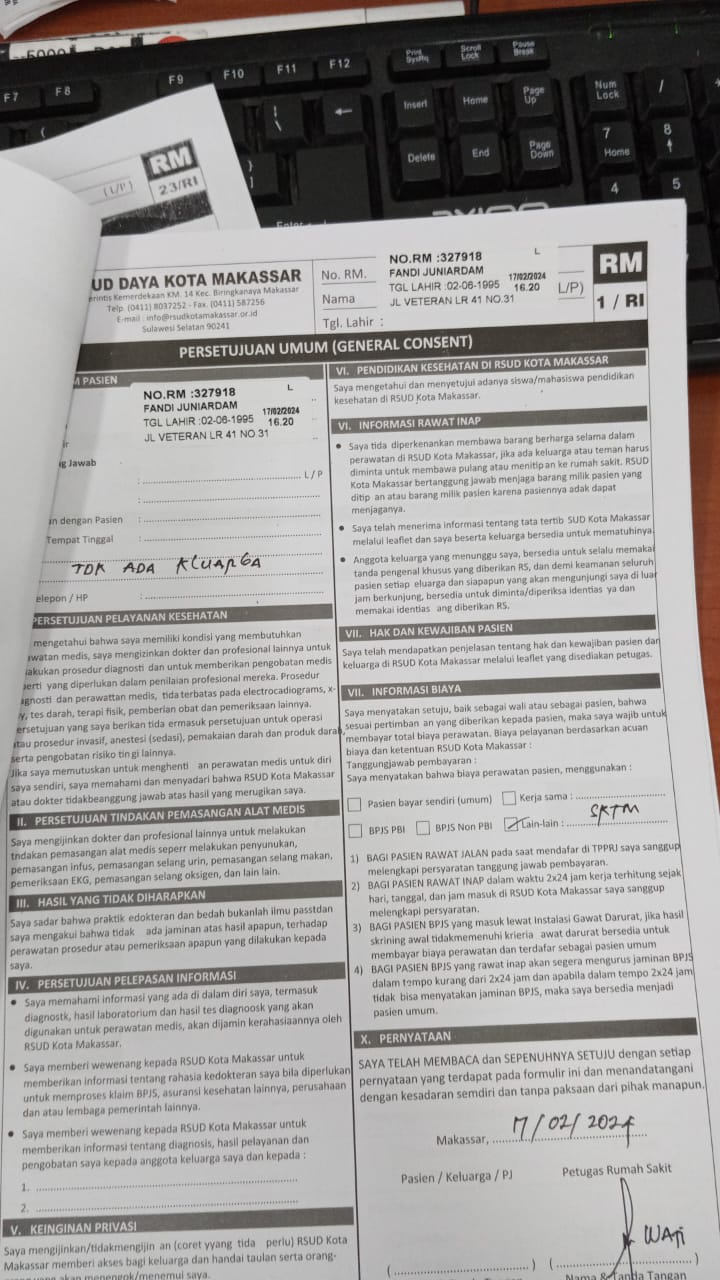 5000
F7
F8
F9
F10
F11
F12
Print
SysRq
Scroll
Lock
Pause
Break
Insert
Home
Page
Up
Num
Lock
/
Delete
End
Page
Down
7
Home
8
4
5
Enter
(L/P)
RM
23/RI
UD DAYA KOTA MAKASSAR
erintis Kemerdekaan KM. 14 Kec. Biringkanaya Makassar
Telp. (0411) 8037252 - Fax. (0411) 587256
E-mail : info@rsudkotamakassar.or.id
Sulawesi Selatan 90241
No. RM.
Nama
Tgl. Lahir :
NO.RM :327918 L
FANDI JUNIARDAM 17/02/2024
TGL LAHIR :02-06-1995 16.20
JL VETERAN LR 41 NO.31
L/P)
RM
1 / RI
PERSETUJUAN UMUM (GENERAL CONSENT)
M PASIEN
NO.RM :327918 L
FANDI JUNIARDAM 17/02/2024
TGL LAHIR :02-06-1995 16.20
JL VETERAN LR 41 NO.31
ir
g Jawab
: L / P
:
n dengan Pasien :
Tempat Tinggal :
TDK ADA KLUARGA
elepon / HP :
PERSETUJUAN PELAYANAN KESEHATAN
mengetahui bahwa saya memiliki kondisi yang membutuhkan
awatan medis, saya mengizinkan dokter dan profesional lainnya untuk
lakukan prosedur diagnosti dan untuk memberikan pengobatan medis
perti yang diperlukan dalam penilaian profesional mereka. Prosedur
agnosti dan perawattan medis, tida terbatas pada electrocadiograms, x-
y, tes darah, terapi fisik, pemberian obat dan pemeriksaan lainnya.
ersetujuan yang saya berikan tida ermasuk persetujuan untuk operasi
atau prosedur invasif, anestesi (sedasi), pemakaian darah dan produk darah,
serta pengobatan risiko tin gi lainnya.
Jika saya memutuskan untuk menghenti an perawatan medis untuk diri
saya sendiri, saya memahami dan menyadari bahwa RSUD Kota Makassar
atau dokter tidakbeanggung jawab atas hasil yang merugikan saya.
II. PERSETUJUAN TINDAKAN PEMASANGAN ALAT MEDIS
Saya mengijinkan dokter dan profesional lainnya untuk melakukan
tndakan pemasangan alat medis seperr melakukan penyunukan,
pemasangan infus, pemasangan selang urin, pemasangan selang makan,
pemeriksaan EKG, pemasangan selang oksigen, dan lain lain.
III. HASIL YANG TIDAK DIHARAPKAN
Saya sadar bahwa praktik edokteran dan bedah bukanlah ilmu passtdan
saya mengakui bahwa tidak ada jaminan atas hasil apapun, terhadap
perawatan prosedur atau pemeriksaan apapun yang dilakukan kepada
saya.
IV. PERSETUJUAN PELEPASAN INFORMASI
• Saya memahami informasi yang ada di dalam diri saya, termasuk
diagnostk, hasil laboratorium dan hasil tes diagnoosk yang akan
digunakan untuk perawatan medis, akan dijamin kerahasiaannya oleh
RSUD Kota Makassar.
• Saya memberi wewenang kepada RSUD Kota Makassar untuk
memberikan informasi tentang rahasia kedokteran saya bila diperlukan
untuk memproses klaim BPJS, asuransi kesehatan lainnya, perusahaan
dan atau lembaga pemerintah lainnya.
• Saya memberi wewenang kepada RSUD Kota Makassar untuk
memberikan informasi tentang diagnosis, hasil pelayanan dan
pengobatan saya kepada anggota keluarga saya dan kepada :
1.
2.
V. KEINGINAN PRIVASI
Saya mengijinkan/tidakmengijin an (coret yyang tida perlu) RSUD Kota
Makassar memberi akses bagi keluarga dan handai taulan serta orang-
akan menengok/menemui saya.
VI. PENDIDIKAN KESEHATAN DI RSUD KOTA MAKASSAR
Saya mengetahui dan menyetujui adanya siswa/mahasiswa pendidikan
kesehatan di RSUD Kota Makassar.
VI. INFORMASI RAWAT INAP
• Saya tida diperkenankan membawa barang berharga selama dalam
perawatan di RSUD Kota Makassar, jika ada keluarga atau teman harus
diminta untuk membawa pulang atau menitip an ke rumah sakit. RSUD
Kota Makassar bertanggung jawab menjaga barang milik pasien yang
ditip an atau barang milik pasien karena pasiennya adak dapat
menjaganya.
• Saya telah menerima informasi tentang tata tertib SUD Kota Makassar
melalui leaflet dan saya beserta keluarga bersedia untuk mematuhinya.
• Anggota keluarga yang menunggu saya, bersedia untuk selalu memakai
tanda pengenal khusus yang diberikan RS, dan demi keamanan seluruh
pasien setiap eluarga dan siapapun yang akan mengunjungi saya di luar
jam berkunjung, bersedia untuk diminta/diperiksa identias ya dan
memakai identias ang diberikan RS.
VII. HAK DAN KEWAJIBAN PASIEN
Saya telah mendapatkan penjelasan tentang hak dan kewajiban pasien dan
keluarga di RSUD Kota Makassar melalui leaflet yang disediakan petugas.
VII. INFORMASI BIAYA
Saya menyatakan setuju, baik sebagai wali atau sebagai pasien, bahwa
sesuai pertimban an yang diberikan kepada pasien, maka saya wajib untuk
membayar total biaya perawatan. Biaya pelayanan berdasarkan acuan
biaya dan ketentuan RSUD Kota Makassar :
Tanggungjawab pembayaran :
Saya menyatakan bahwa biaya perawatan pasien, menggunakan :
Pasien bayar sendiri (umum) Kerja sama :
BPJS PBI BPJS Non PBI Lain-lain : SKTM
1) BAGI PASIEN RAWAT JALAN pada saat mendafar di TPPRJ saya sanggup
melengkapi persyaratan tanggung jawab pembayaran.
2) BAGI PASIEN RAWAT INAP dalam waktu 2x24 jam kerja terhitung sejak
hari, tanggal, dan jam masuk di RSUD Kota Makassar saya sanggup
melengkapi persyaratan.
3) BAGI PASIEN BPJS yang masuk lewat Instalasi Gawat Darurat, jika hasil
skrining awal tidakmemenuhi krieria awat darurat bersedia untuk
membayar biaya perawatan dan terdafar sebagai pasien umum
4) BAGI PASIEN BPJS yang rawat inap akan segera mengurus jaminan BPJS
dalam tempo kurang dari 2x24 jam dan apabila dalam tempo 2x24 jam
tidak bisa menyatakan jaminan BPJS, maka saya bersedia menjadi
pasien umum.
X. PERNYATAAN
SAYA TELAH MEMBACA dan SEPENUHNYA SETUJU dengan setiap
pernyataan yang terdapat pada formulir ini dan menandatangani
dengan kesadaran semdiri dan tanpa paksaan dari pihak manapun.
Makassar, 17/02/2024
Pasien / Keluarga / PJ Petugas Rumah Sakit
WATI
( ) ( )
Nama & Tanda Tangan